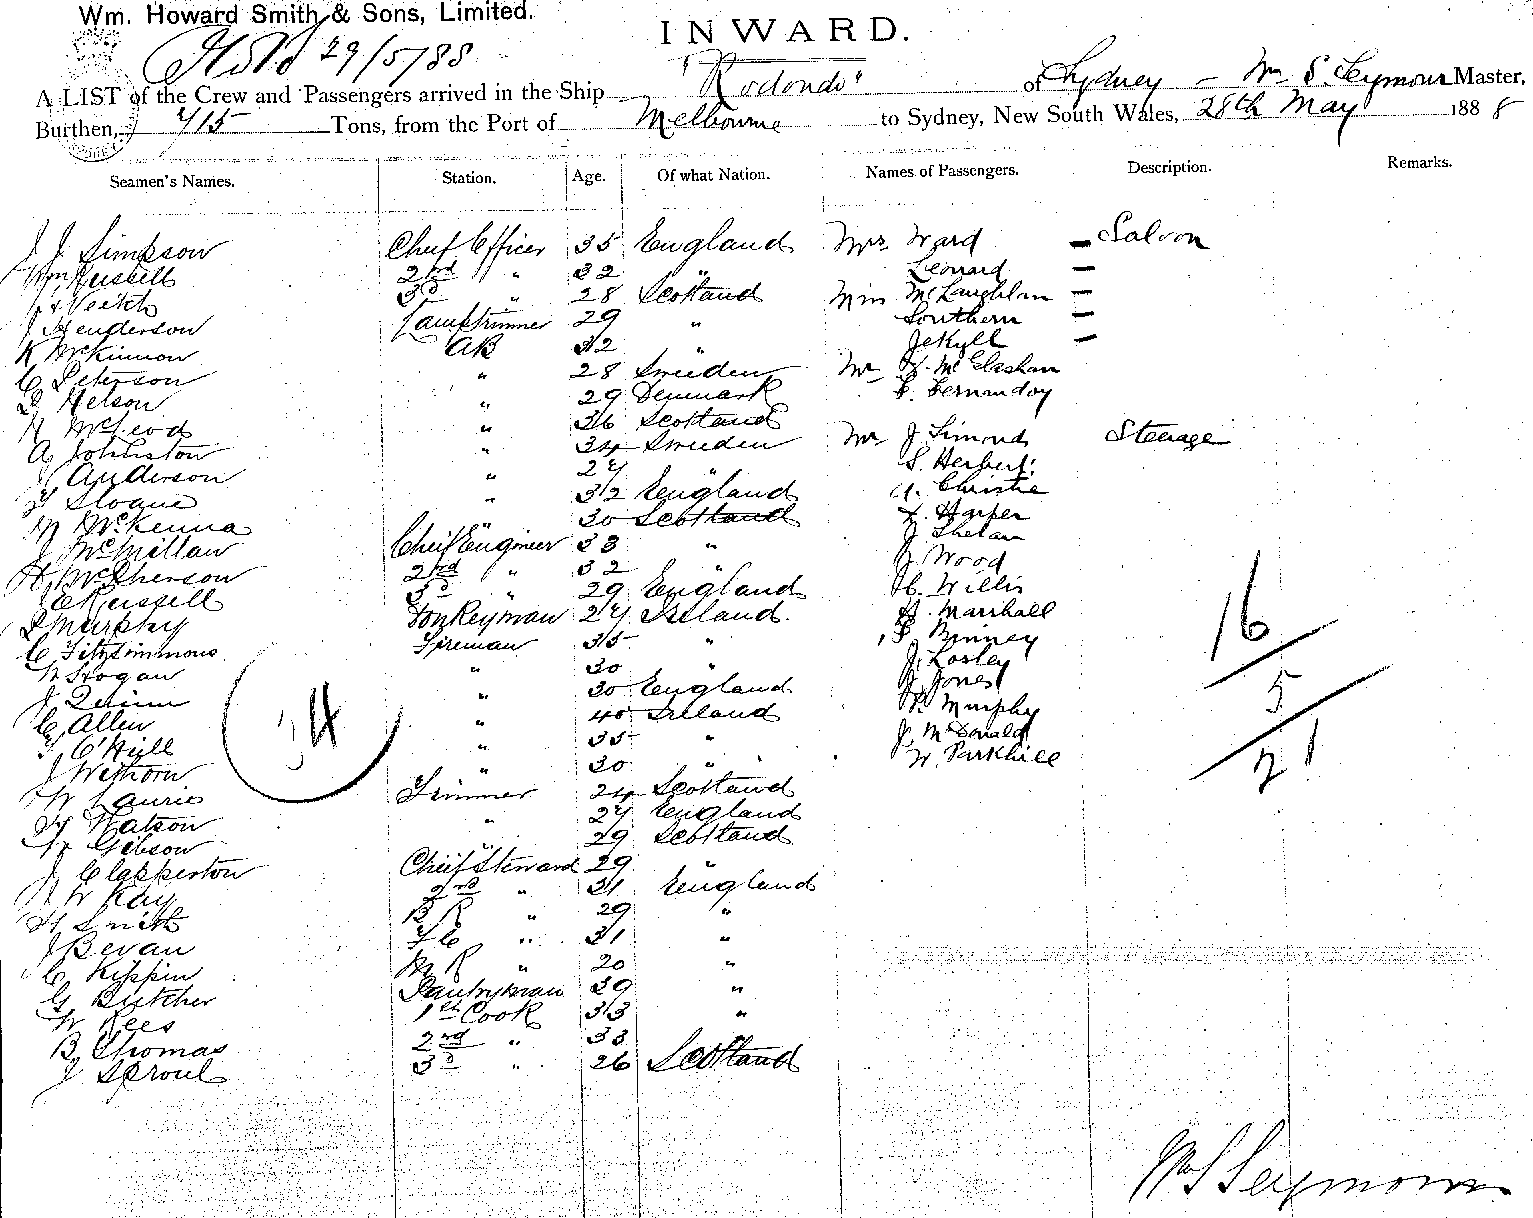 Wm. Howard Smith & Sons, Limited.
INWARD.
29/5/88
A LIST of the Crew and Passengers arrived in the Ship "Rodondo" of Sydney – Wm S. Seymour Master,
Burthen, 715 Tons, from the Port of Melbourne to Sydney, New South Wales, 28th May 1888
Seamen's Names. Station. Age. Of what Nation. Names of Passengers. Description. Remarks.
J J Simpson Cheif Officer 35 England Mrs Ward – Saloon
Wm Russell 2nd " 32 " Leonard –
Veitch 3d " 28 Scotland Miss McLaughlan –
J Henderson Lamptrimmer 29 " Southern –
K McKinnon AB 32 " Jekyll –
C Peterson " 28 Sweeden Mr McGlashan
Nelson " 29 Denmark Fernandoy
N McLeod " 36 Scotland
A Johnston " 34 Sweeden Mr J Simonds Steerage
J Anderson " 27 " S. Herbert
Sloane " 32 England A. Christie
McKenna " 30 Scotland Harper
J McMillan Cheif Engineer 33 " J Phelan
H McPherson 2nd " 32 " J Wood
E Russell 3d " 29 England H. Willis
Murphy Donkeyman 27 Ireland A. Marshall
C Fitzsimmons Fireman 35 " Binney
W Hogan " 30 " J. Losley
J Quinn " 30 England Jones
C Allen " 40 Ireland P. Murphy
O'Hill " 35 " J. McDonald
J Wethorn " 30 " W. Parkhill
W Laurie Trimmer 24 Scotland
Watson " 27 England
Gibson " 29 Scotland
J Clapperton Cheif Steward 29 "
W Kay 2nd " 31 England
H Smith B R " 29 "
J Bevan F C " 31 "
C Kippin M R " 20 "
G Butcher Pantryman 39 "
W Rees 1st Cook 33 "
B Thomas 2nd " 33 "
J Sproul 3d " 26 Scotland
34
16
5
21
Wm S Seymour